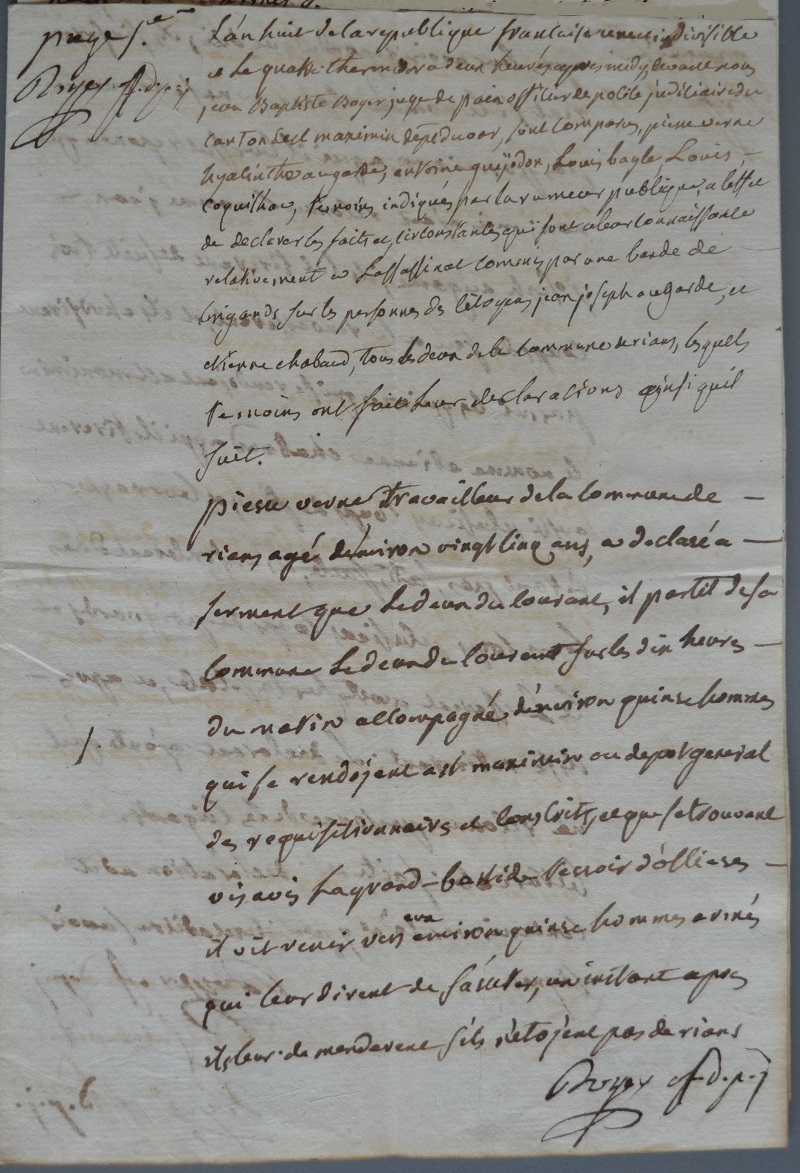 page 1.ere
Boyer off. d. p. j.
L'an huit de la republique francaise une et indivisible
et le quatre thermidor a deux heures apres midy, devant nous
jean Baptiste Boyer juge de paix officier de police judiciaire du
canton de st maximin dept du var, sont comparus, pierre verne
hyacinthe augarde, antoine Louis bayle Louis
coquilhac, temoins indiqués par la rumeur publique, a l'effet
de declarer les faits et circonstances qui sont a leur connaissance
relativement a L'assassinat commis par une bande de
brigands, sur les personnes des citoyens jean joseph augarde, et
etienne chabaud, tous les deux de la commune de rians, lesquels
temoins ont fait leur declarations ainsi qu'il
suit.
pierre verne travailleur de la commune de
rians agé d'environ vingt cinq ans, a declaré a
serment que le deux du courant, il partit de sa
commune le deux de courant sur les dix heures
du matin accompagné d'environ quinze hommes
1.
qui se rendojent a st maximin au depot general
des requisitionnaires et conscrits, et que se trouvant
vis avis la grand bastide terroir d'ollieres
il vit venir vers eux environ quinze hommes armés
qui leur dirent de un instant apres
ils leur demanderent s'ils n'etojent pas de rians
Boyer off. d. p. j.